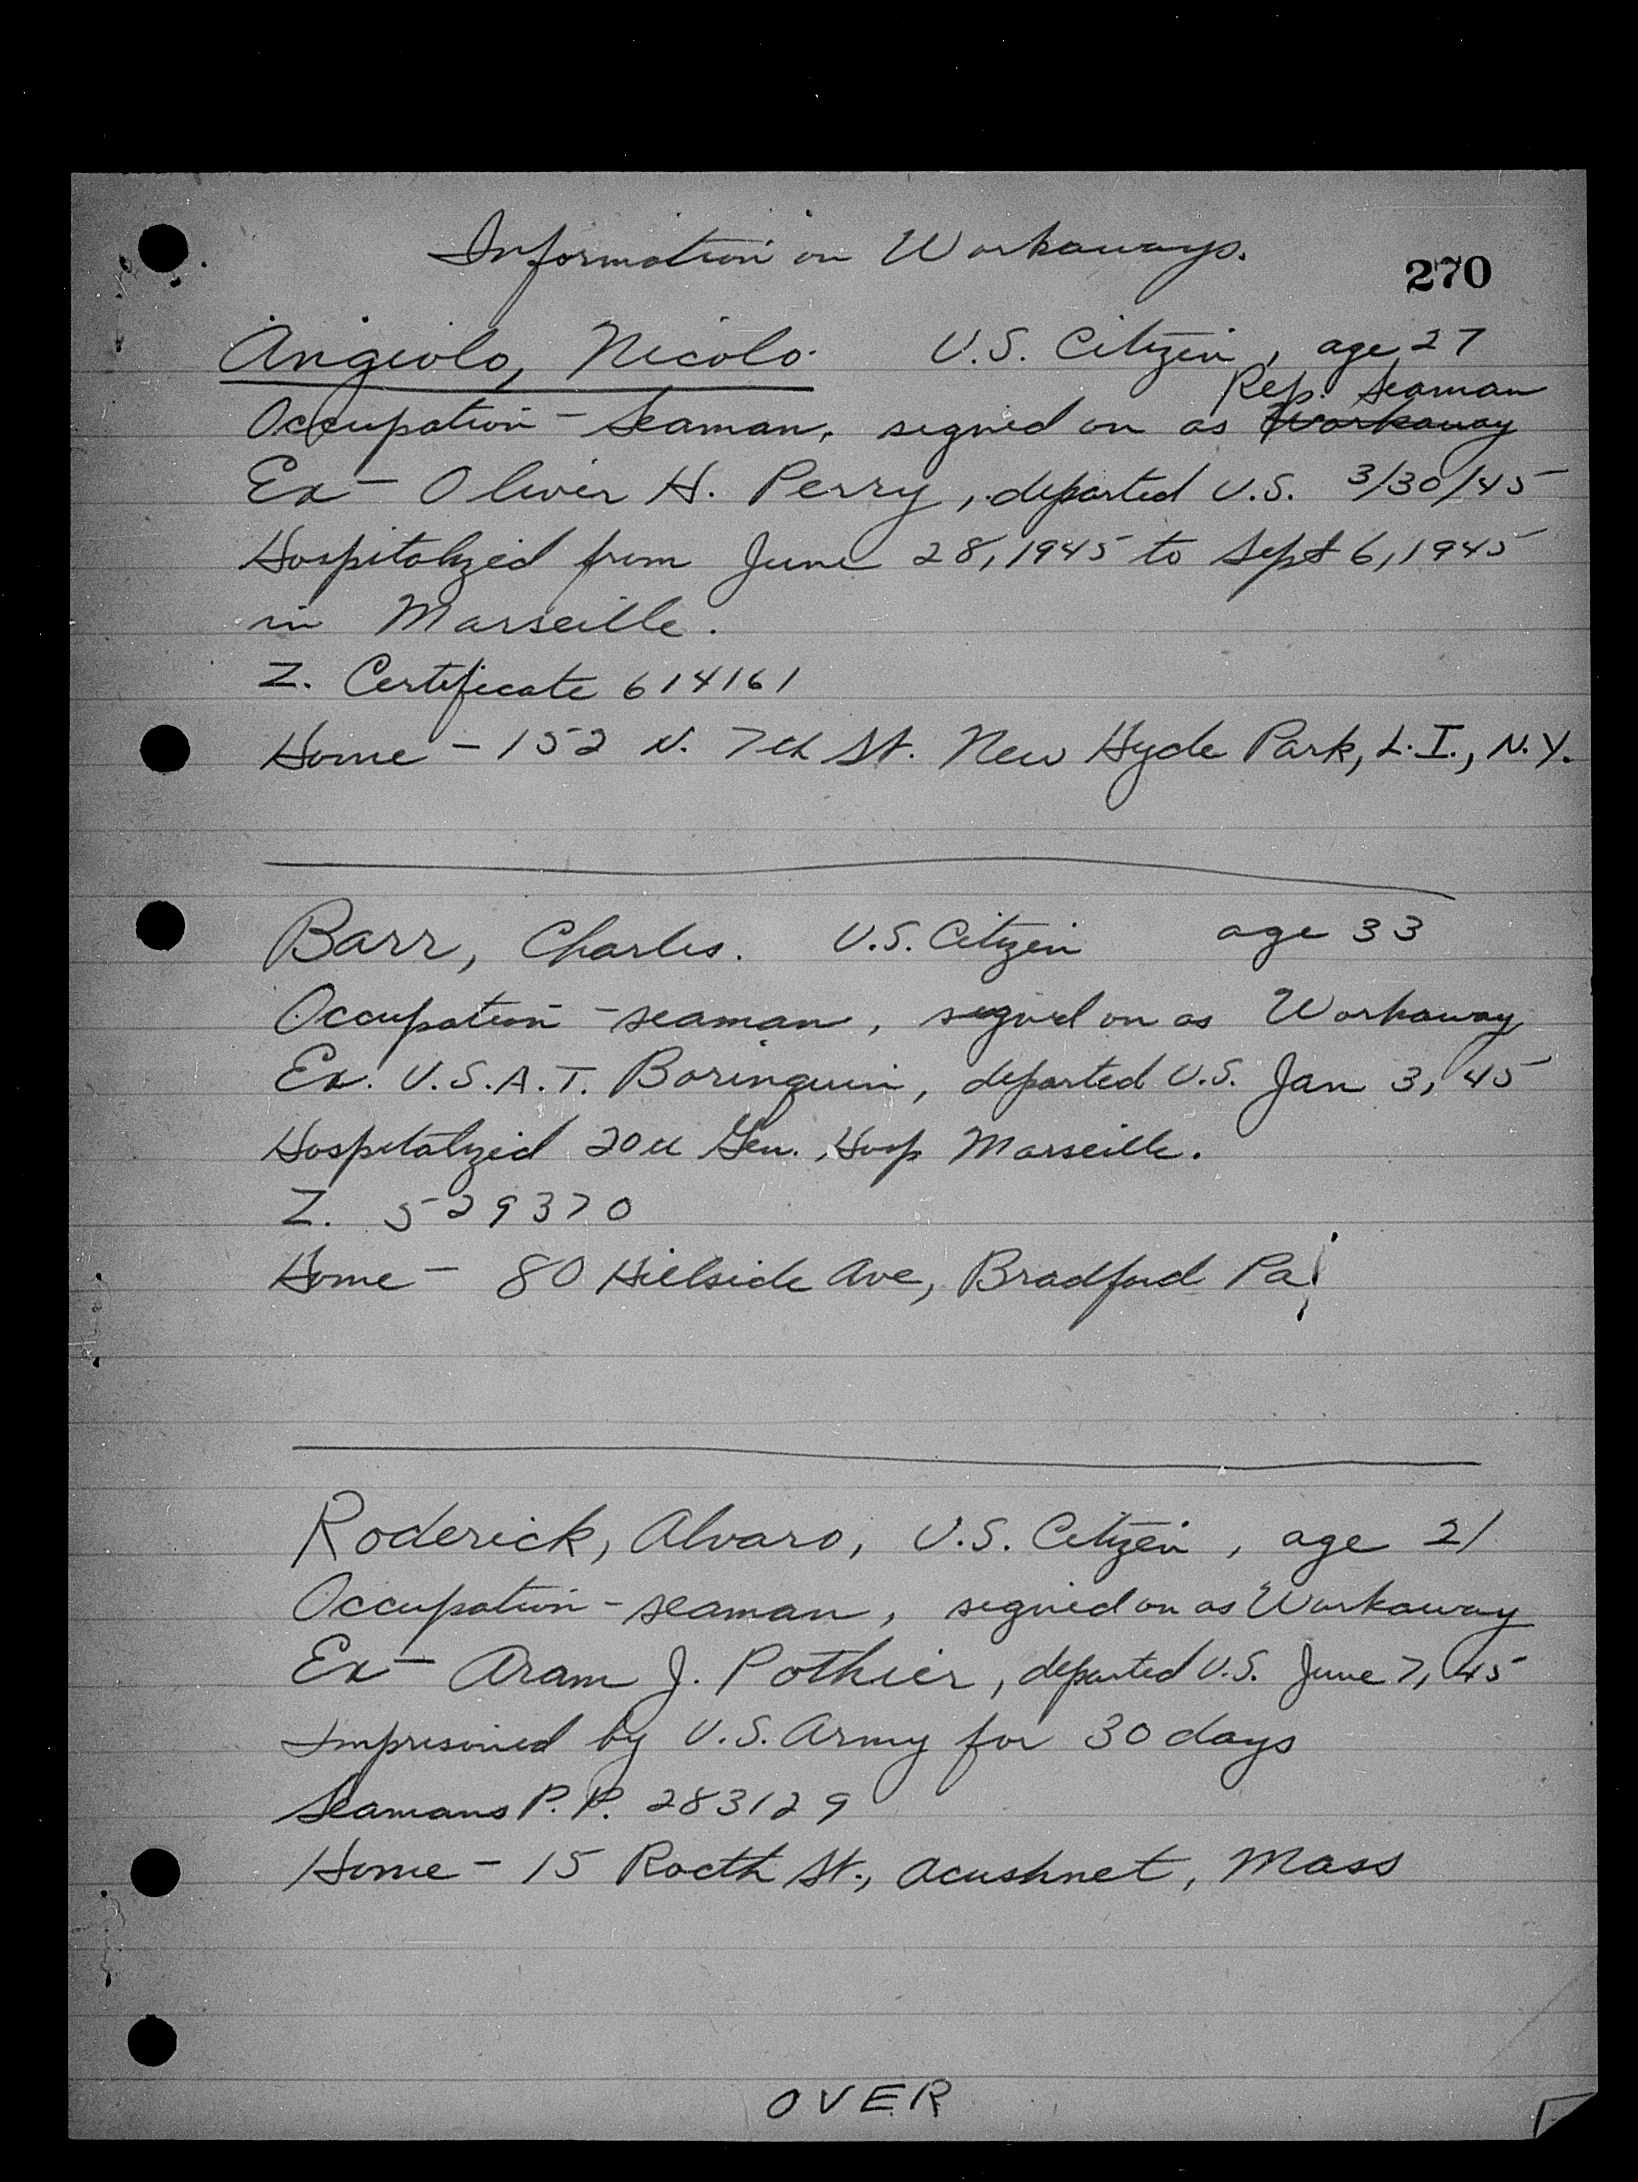 Information on Workaways.
270
Angiolo, Nicolo. U.S. Citizen, age 27
Rep. Seaman
Occupation - Seaman, signed on as Workaway
Ex - Oliver H. Perry, departed U.S. 3/30/45
Hospitalized from June 28, 1945 to Sept 6, 1945
in Marseille.
Z. Certificate 614161
Home - 152 N. 7th St. New Hyde Park, L.I., N.Y.
Barr, Charles. U.S. Citizen age 33
Occupation - seaman, signed on as Workaway
Ex. U.S.A.T. Borinquin, departed U.S. Jan 3, 45
Hospitalized 20th Gen. Hosp Marseille.
Z. 529370
Home - 80 Hillside Ave, Bradford Pa
Roderick, Alvaro, U.S. Citizen, age 21
Occupation - seaman, signed on as Workaway
Ex - Aram J. Pothier, departed U.S. June 7, 45
Imprisoned by U.S. Army for 30 days
Seamans P.P. 283129
Home - 15 Rocth St., Acushnet, Mass
OVER